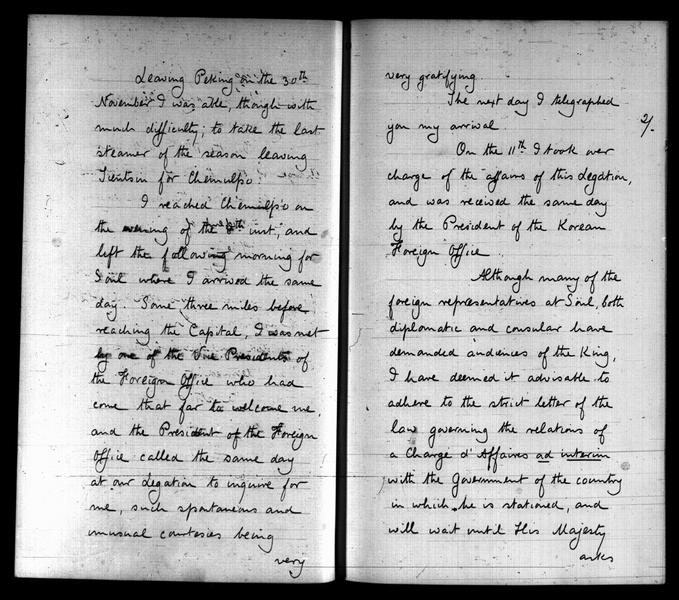 Leaving Peking on the 30th
November I was able, though with
much difficulty, to take the last
steamer of the season leaving
Tientsin for Chemulpo.
I reached Chemulpo on
the evening of the inst; and
left the following morning for
Söul where I arrived the same
day. Some three miles before
reaching the Capital, I was met
by one of the Vice Presidents of
the Foreign Office who had
come that far to welcome me,
and the President of the Foreign
Office called the same day
at our Legation to inquire for
me, such spontaneous and
unusual courtesies being
very
very gratifying.
The next day I telegraphed
you my arrival.
2/.
On the 11th I took over
charge of the affairs of this Legation,
and was received the same day
by the President of the Korean
Foreign Office.
Although many of the
foreign representatives at Söul, both
diplomatic and consular have
demanded audiences of the King,
I have deemed it advisable to
adhere to the strict letter of the
law governing the relations of
a Chargé d'Affaires ad interim
with the Government of the country
in which he is stationed, and
will wait until His Majesty
asks